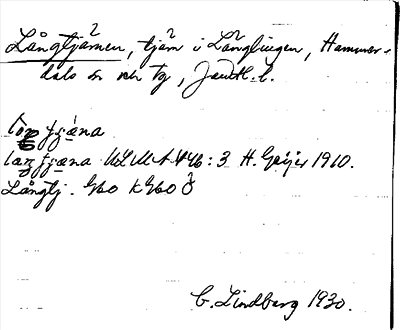 Långtjärnen, tjärn i Långlingen, Hammer-
dals sn och tg, Jämtl. l.
fjæna
fjæna ULMA 446:3 H. Geijer 1910.
Långtj. Gbo KGbo Ö
C. Lindberg 1930.